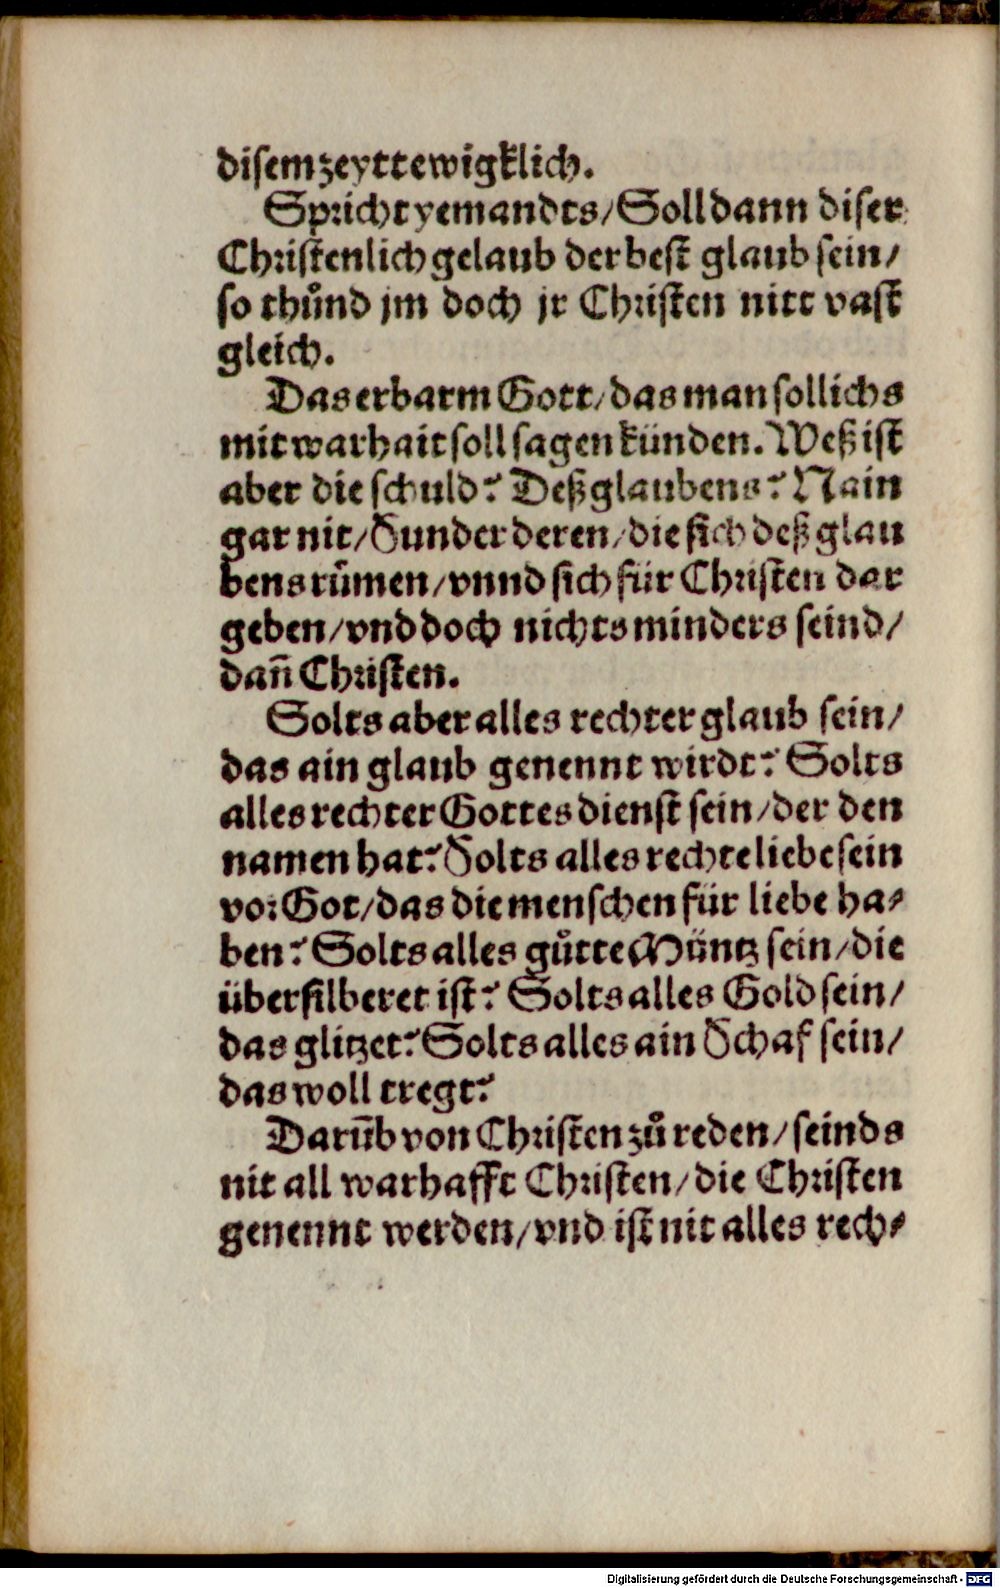 disem zeytt ewigklich.
Spricht yemandts/ Soll dann diser
Christenlich gelaub der best glaub sein/
so thůnd jm doch jr Christen nitt vast
gleich.
Das erbarm Gott/ das man sollichs
mit warhait soll sagen künden. Weß ist
aber die schuld? Deß glaubens? Nain
gar nit/ Sunder deren/ die sich deß glau
bens růmen/ vnnd sich für Christen dar
geben/ vnd doch nichts minders seind/
dañ Christen.
Solts aber alles rechter glaub sein/
das ain glaub genennt wirdt? Solts
alles rechter Gottes dienst sein/ der den
namen hat? Solts alles rechte liebe sein
vor Got/ das die menschen für liebe ha⸗
ben? Solts alles gůtte Müntz sein/ die
übersilberet ist? Solts alles Gold sein/
das glitzet? Solts alles ain Schaf sein/
das woll tregt?
Darum̄b von Christen zů reden/ seinds
nit all warhafft Christen/ die Christen
genennt werden/ vnd ist nit alles rech⸗
Digitalisierung gefördert durch die Deutsche Forschungsgemeinschaft - DFG